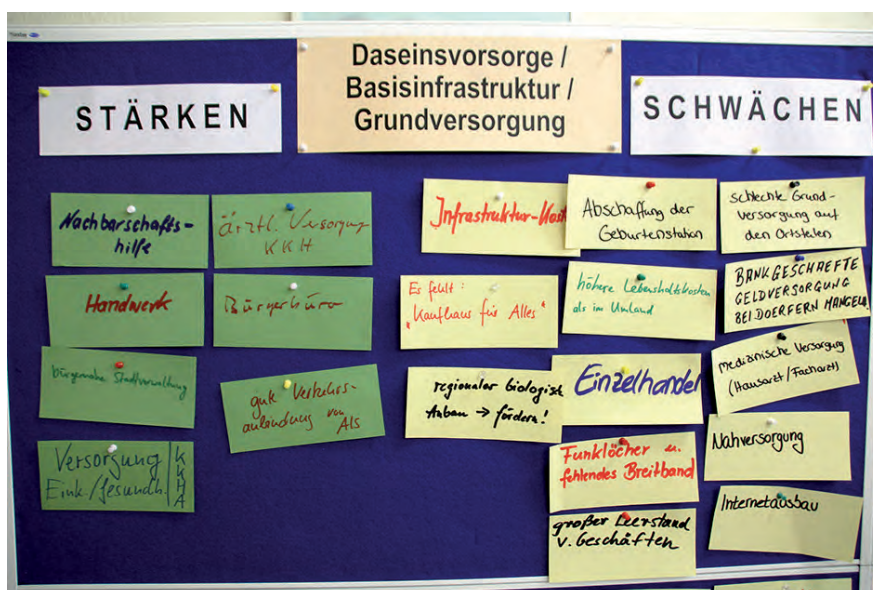 STÄRKEN
Daseinsvorsorge /
Basisinfrastruktur /
Grundversorgung
SCHWÄCHEN
Nachbarschafts-
hilfe
Handwerk
bürgernahe Stadtverwaltung
Versorgung
Eink./Gesundh.
KKHA
ärztl. Versorgung
KKH
Bürgerbüro
gute Verkehrs-
anbindung von
Als
Infrastruktur-
Es fehlt:
"Kaufhaus für Alles"
regionaler biologisch
Anbau → fördern!
Abschaffung der
Geburtenstation
höhere Lebenshaltskosten
als im Umland
Einzelhandel
Funklöcher u.
fehlendes Breitband
großer Leerstand
v. Geschäften
schlechte Grund-
versorgung auf
den Ortsteilen
BANKGESCHAEFTE
GELDVERSORGUNG
BEI DOERFERN MANGELH.
medizinische Versorgung
(Hausarzt/Facharzt)
Nahversorgung
Internetausbau